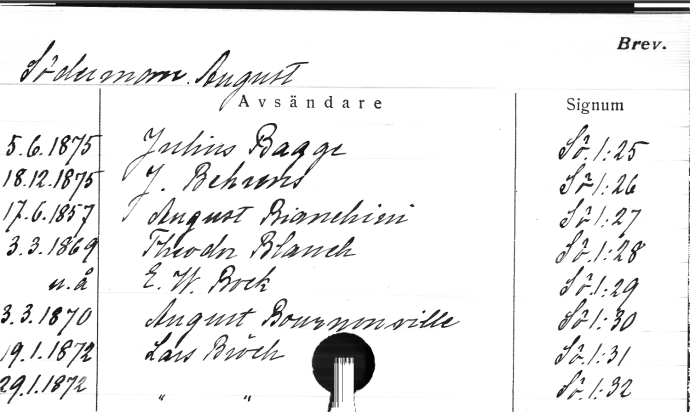 Brev.
Söderman. August
Avsändare Signum
5.6.1875 Julius Bagge Sö.1:25
18.12.1875 J. Behrens Sö.1:26
17.6.1857 August Bianchini Sö.1:27
3.3.1869 Theodor Blanch Sö.1:28
u.å E. W. Bock Sö.1:29
3.3.1870 August Bournonville Sö.1:30
19.1.1872 Lars Bröch Sö.1:31
29.1.1872 " " Sö.1:32